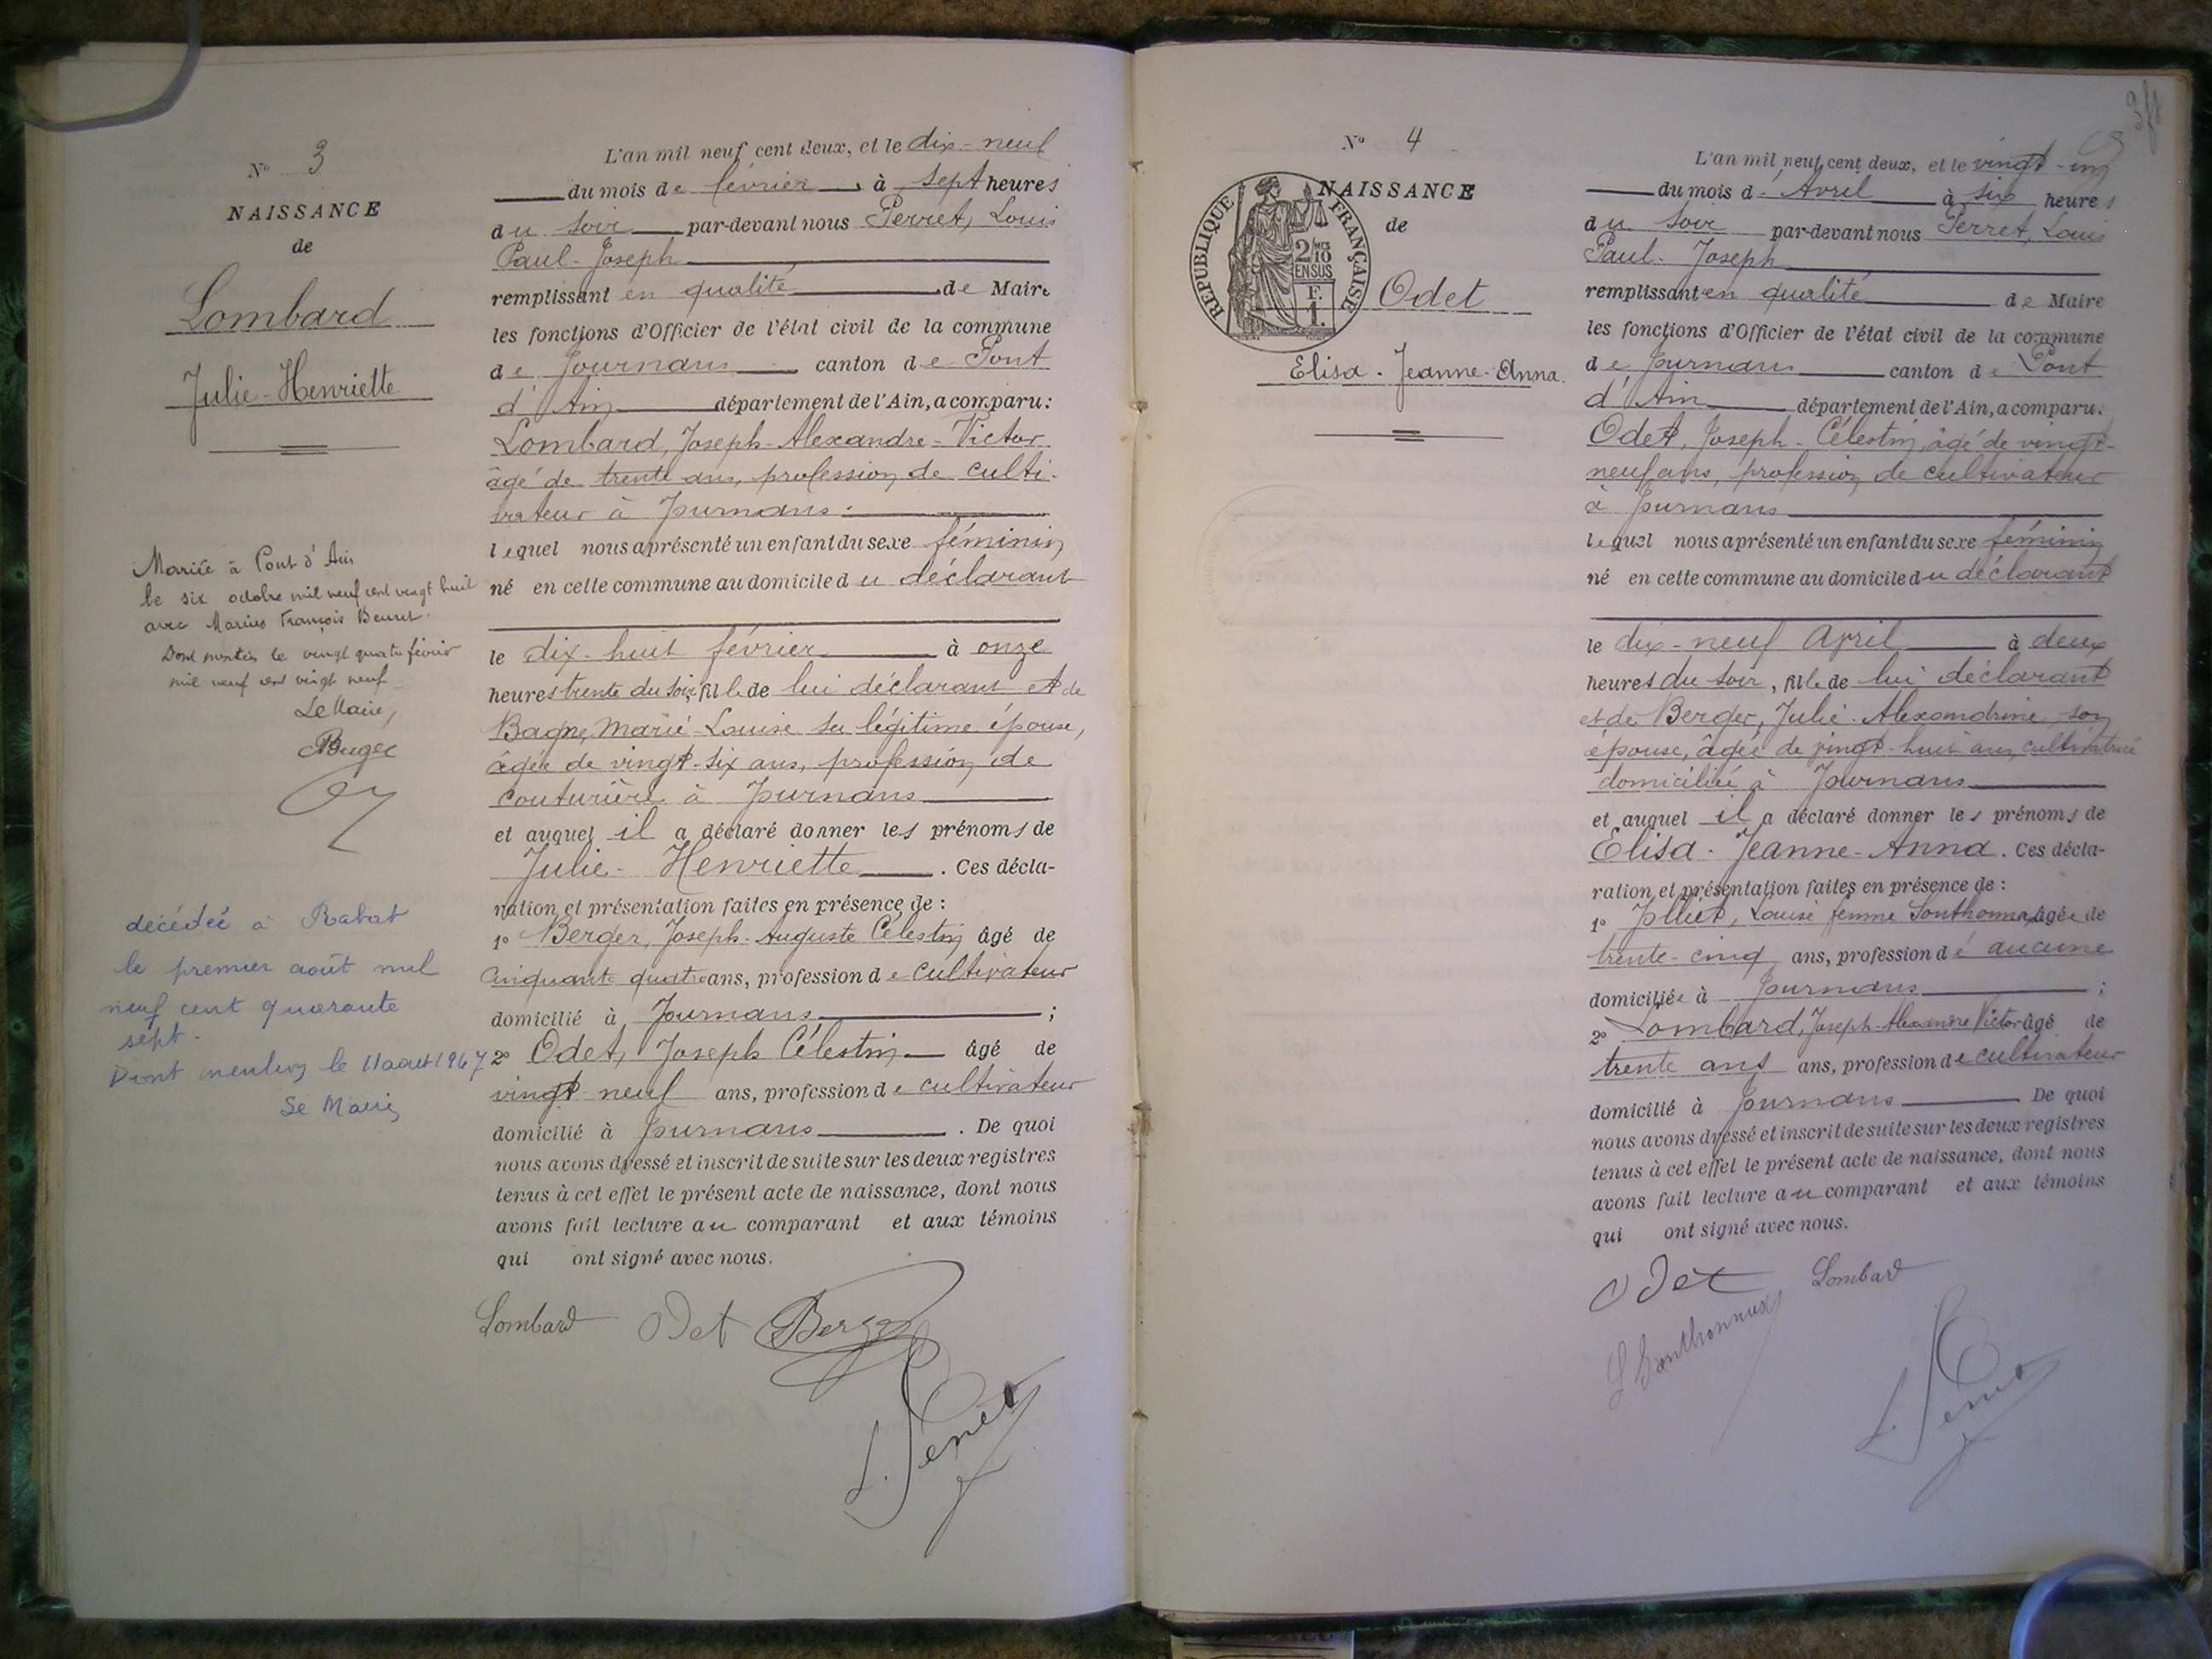 N° 3
NAISSANCE
de
Lombard
Julie-Henriette
Mariée à Pont d'Ain
le six octobre mil neuf cent vingt huit
avec Marius François Beuret.
Dont mention le vingt quatre février
mil neuf cent vingt neuf
Le Maire,
décédée à Rabat
le premier août mil
neuf cent quarante
sept.
Dont mention le 11 août 1967
Le Maire
L'an mil neuf cent deux, et le dix-neuf
du mois de février, à sept heures
du soir par-devant nous Perret, Louis
Paul-Joseph
remplissant en qualité de Maire
les fonctions d'Officier de l'état civil de la commune
de Journans canton de Pont
d'Ain département de l'Ain, a comparu:
Lombard, Joseph-Alexandre-Victor
âgé de trente ans, profession de culti-
vateur à Journans.
lequel nous a présenté un enfant du sexe féminin
né en cette commune au domicile du déclarant
le dix-huit février à onze
heures trente du soir, fille de lui déclarant et de
Bagne, Marie-Louise sa légitime épouse,
âgée de vingt-six ans, profession de
couturière à Journans
et auquel il a déclaré donner les prénoms de
Julie-Henriette. Ces décla-
ration et présentation faites en présence de :
1° Berger, Joseph-Auguste Célestin âgé de
cinquante quatre ans, profession de cultivateur
domicilié à Journans ;
2° Odet, Joseph Célestin âgé de
vingt neuf ans, profession de cultivateur
domicilié à Journans. De quoi
nous avons dressé et inscrit de suite sur les deux registres
tenus à cet effet le présent acte de naissance, dont nous
avons fait lecture au comparant et aux témoins
qui ont signé avec nous.
Lombard Odet Berger
L. Perret
N° 4
NAISSANCE
de
RÉPUBLIQUE FRANÇAISE
2/10
EN SUS
F.
1.
Odet
Elisa-Jeanne-Anna.
L'an mil neuf cent deux, et le vingt-un
du mois d'Avril à six heures
du soir par-devant nous Perret, Louis
Paul-Joseph
remplissant en qualité de Maire
les fonctions d'Officier de l'état civil de la commune
de Journans canton de Pont
d'Ain département de l'Ain, a comparu:
Odet, Joseph-Célestin, âgé de vingt-
neuf ans, profession de cultivateur
à Journans
lequel nous a présenté un enfant du sexe féminin
né en cette commune au domicile du déclarant
le dix-neuf April à deux
heures du soir, fille de lui déclarant
et de Berger, Julie-Alexandrine son
épouse, âgée de vingt-huit ans, cultivatrice
domiciliée à Journans
et auquel il a déclaré donner les prénoms de
Elisa-Jeanne-Anna. Ces décla-
ration et présentation faites en présence de :
1° Louise femme Sonthonnax âgée de
trente-cinq ans, profession de aucune
domiciliée à Journans ;
2° Lombard, Joseph-Alexandre Victor âgé de
trente ans ans, profession de cultivateur
domicilié à Journans De quoi
nous avons dressé et inscrit de suite sur les deux registres
tenus à cet effet le présent acte de naissance, dont nous
avons fait lecture au comparant et aux témoins
qui ont signé avec nous.
Odet Lombard
L Sonthonnax
L. Perret